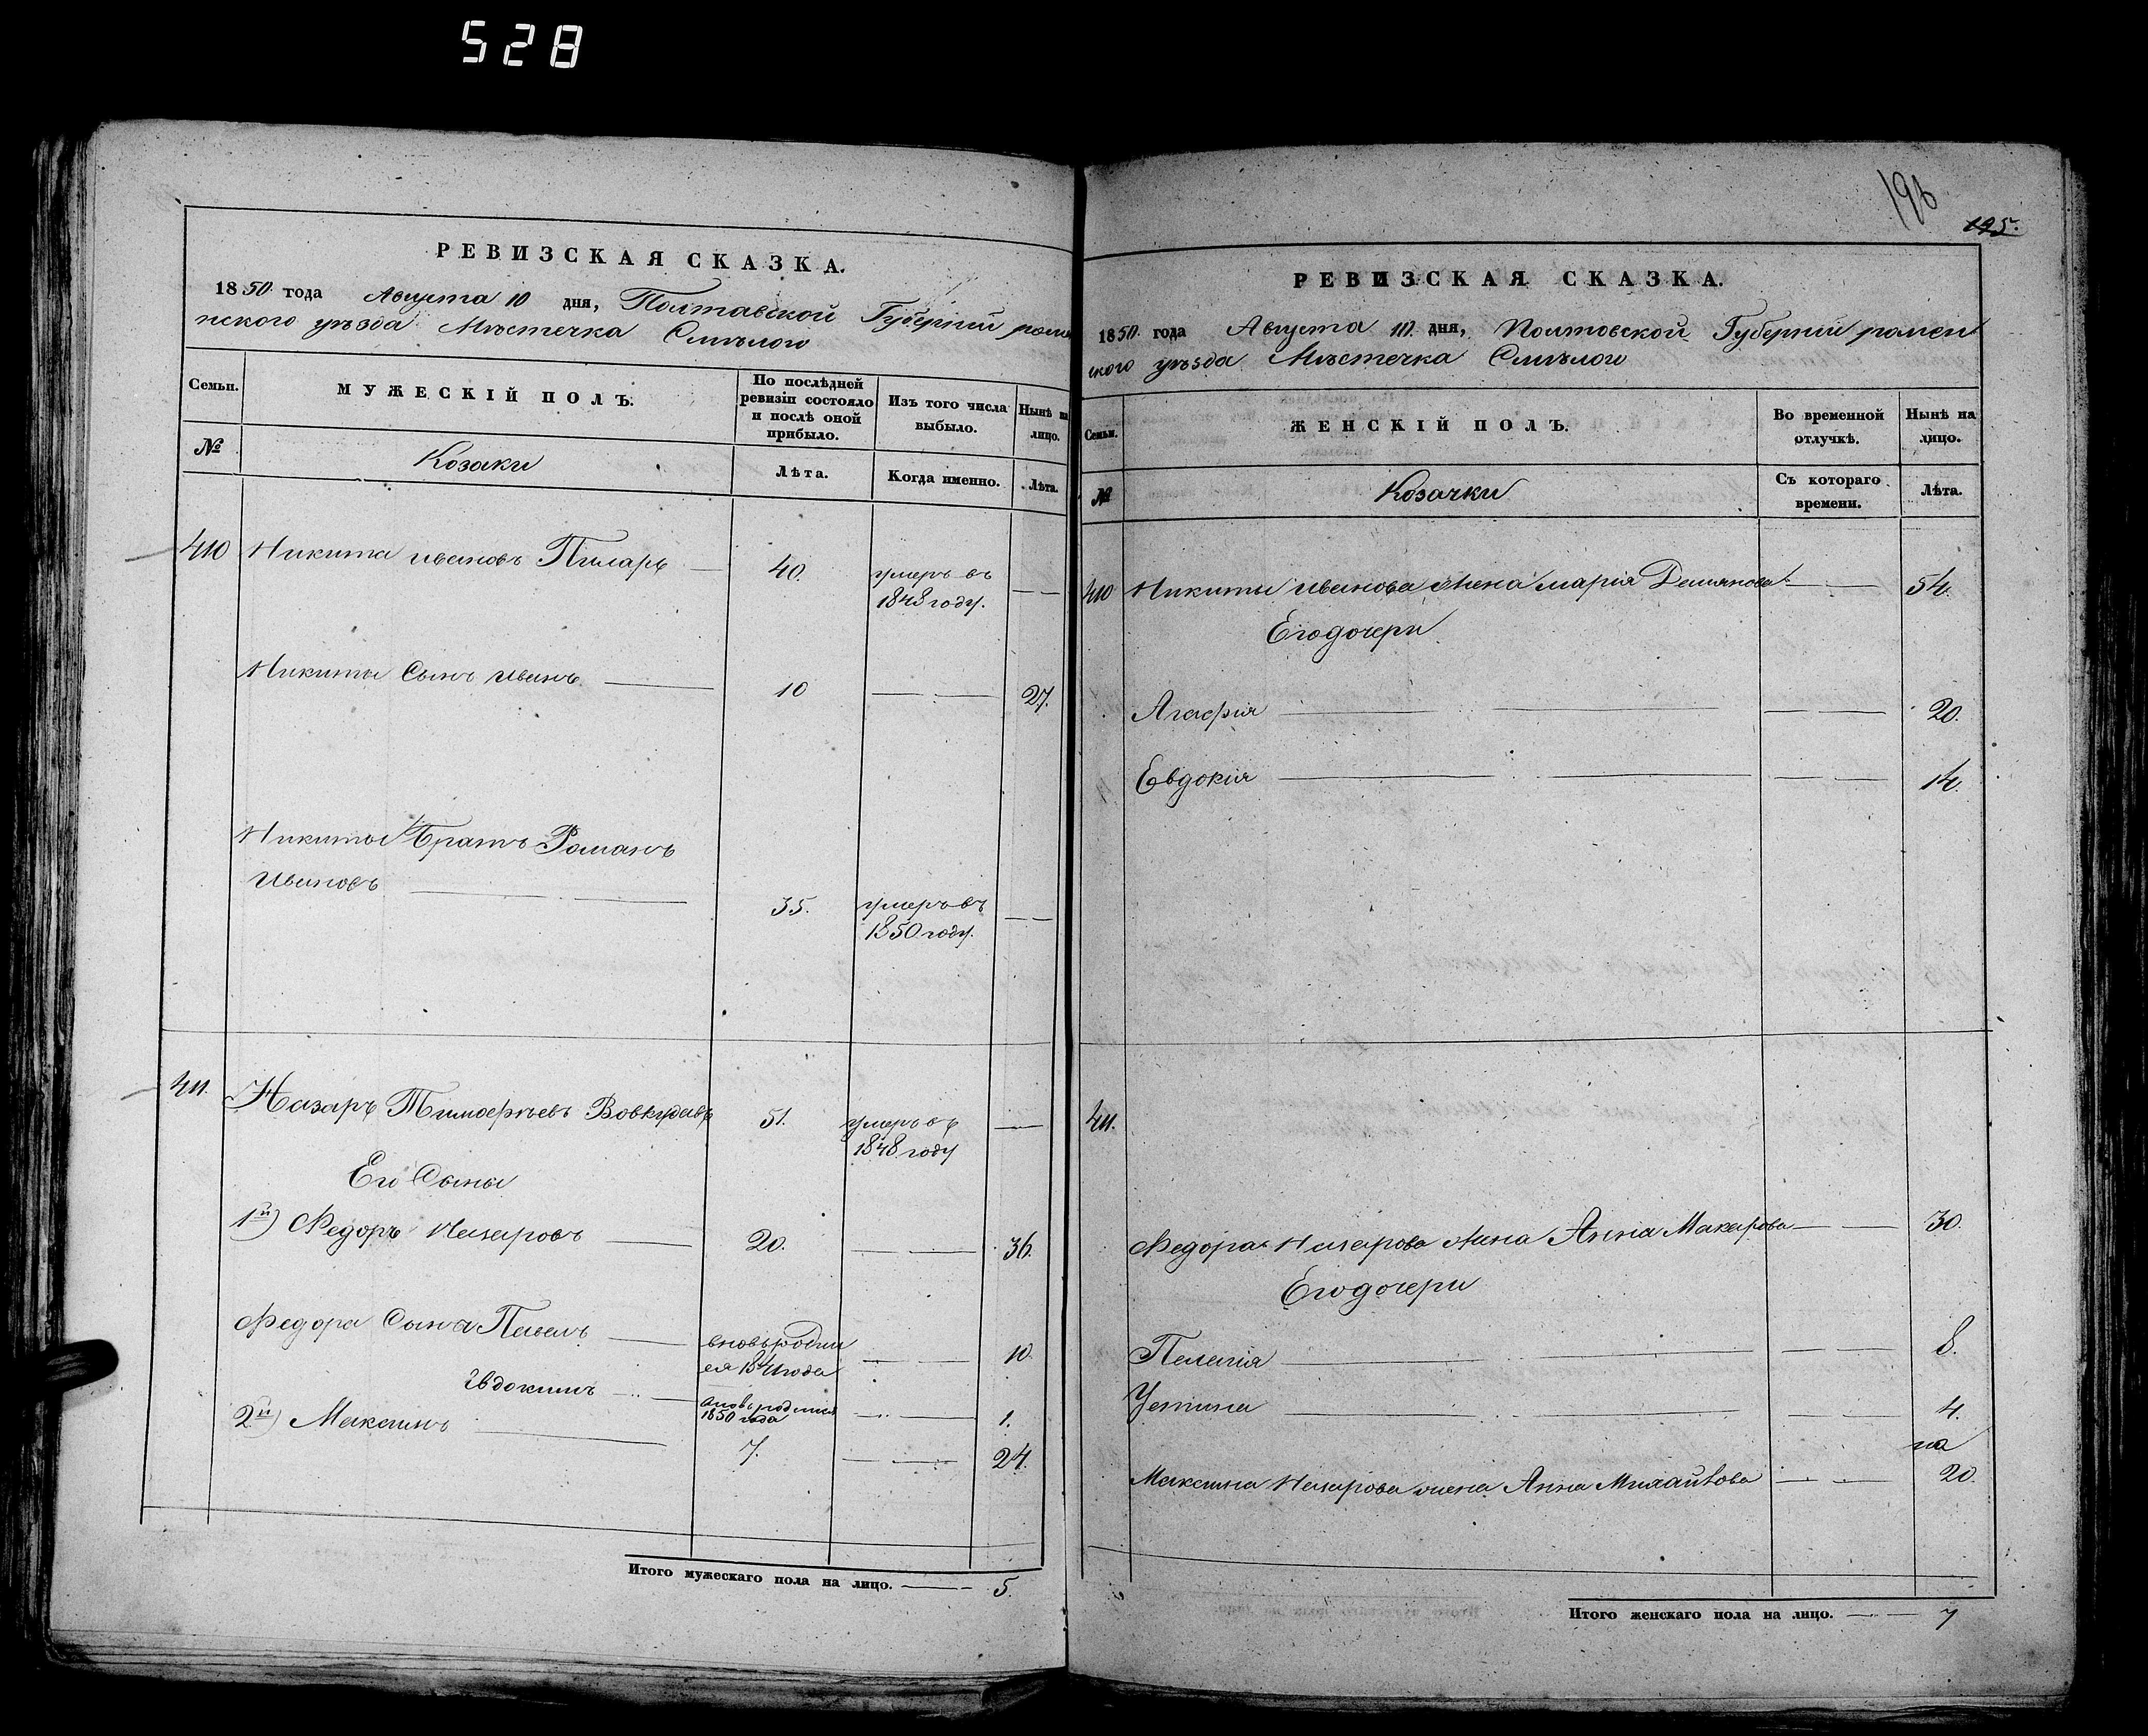 528
РЕВИЗСКАЯ СКАЗКА.
1850 года Августа 10 дня, Полтавской Губерніи роме
нского уѣзда Мѣстечка Смѣлои
Семьи.
МУЖЕСКІЙ ПОЛЪ.
По послѣдней
ревизіи состояло
и послѣ оной
прибыло.
Изъ того числа
выбыло.
Нынѣ на
лицо.
№
Козаки
Лѣта.
Когда именно.
Лѣта.
410 Никита ивановъ Пиларь 40. умеръ въ
1848 году.
Никиты Сынъ иванъ 10 27.
Никиты Братъ Романъ
Ивановъ 35. умеръ въ
1850 году.
411. Назаръ Тимофѣевъ Вовкудавъ 51. умеръ въ
1848 году
Его Сыны
1й) Федоръ Назаровъ 20. 36.
Федора Сына Павелъ вновь родил
ся 1841 года 10
Евдокимъ вновь родился
1850 года 1.
2й) Максимъ 7. 24.
Итого мужескаго пола на лицо. 5.
196
195.
РЕВИЗСКАЯ СКАЗКА.
1850 года Августа 10 дня, Полтовской Губерніи ромен
ского уѣзда Мѣстечка Смѣлои
Семьи.
ЖЕНСКІЙ ПОЛЪ.
Во временной
отлучкѣ.
Нынѣ на
лицо.
№
Козачки
Съ котораго
времени.
Лѣта.
410 Никиты Иванова жена марія Демянова 54.
Его дочери
Агафія 20.
Евдокія 14.
411.
Федора Назарова жена Анна Макарова 30.
Его дочери
Пелагія 8.
Устина 4.
на
Максима Назарова жена Анна Михайлова 20
Итого женскаго пола на лицо. 7